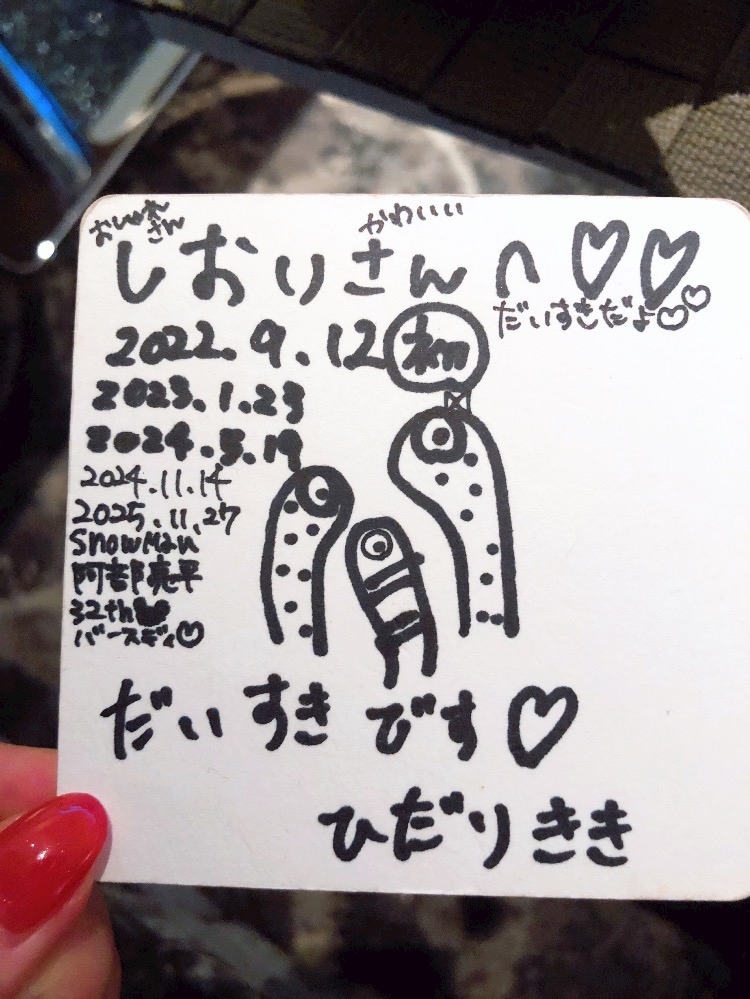 おしゃれさん
かわいい
しおりさんへ♡♡
だいすきだよ♡♡
2022.9.12
2023.1.23
2024.5.19
2024.11.14
2025.11.27
SnowMan
阿部亮平
32th♥
バースディ♡
だいすきです♡
ひだりきき